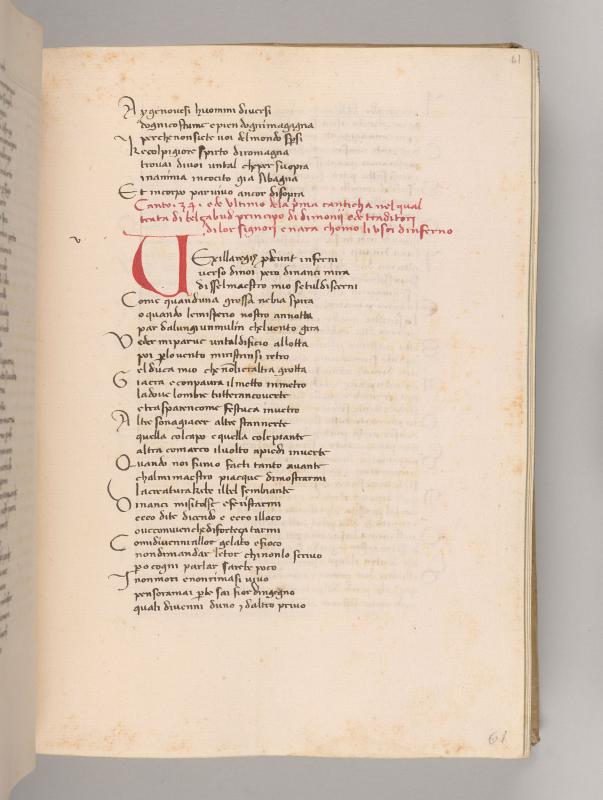 61
Ay genovesi huomini diversi
dogni costume e pien dogni magagna
perche non siete voi del mondo spersi
Kecol pigiore spirto di romagna
trovai di voi un tal che per su opra
in anima in cocito gia si bagna
Et in corpo par vivo ancor di sopra
Canto .34. e de ultimo dela prima canticha nel qual
trata di belzabud principo di dimonii e de traditori
di lor signori e nara chomo li usci dinferno
v
VExilla regis prodeunt inferni
verso di noi pero dinanci mira
disselmaestro mio se tul discerni
Come quanduna grossa nebia spira
o quando lemisperio nostro annotta
par da lungi un mulin chel vento gira
Veder mi parve un tal dificio allotta
poi per lo vento mi ristrinsi retro
el duca mio che non li era altra grotta
Gia era e con paura il metto in metro
la dove lombre tutte ran coverte
e trasparen come festuca in vetro
Altre son a giacer altre stann erte
quella col capo e quella cole piante
altra com arco il volto a piedi inverte
Quando noi fumo facti tanto avante
chal mi maestro piacque di mostrarmi
la creatura kebe il bel sembiante
Dinanci mi si tolse e fe ristarmi
ecco dite dicendo e ecco il loco
ove convien che di forteça tarmi
Com i divenni allor gelato e fioco
non dimandar lector chi non lo scrivo
pero cogni parlar sarebe poco
I non mori e non rimasi vivo
pensa ramai per te sai fior dingegno
quali divenni duno ⁊ daltro privo
61